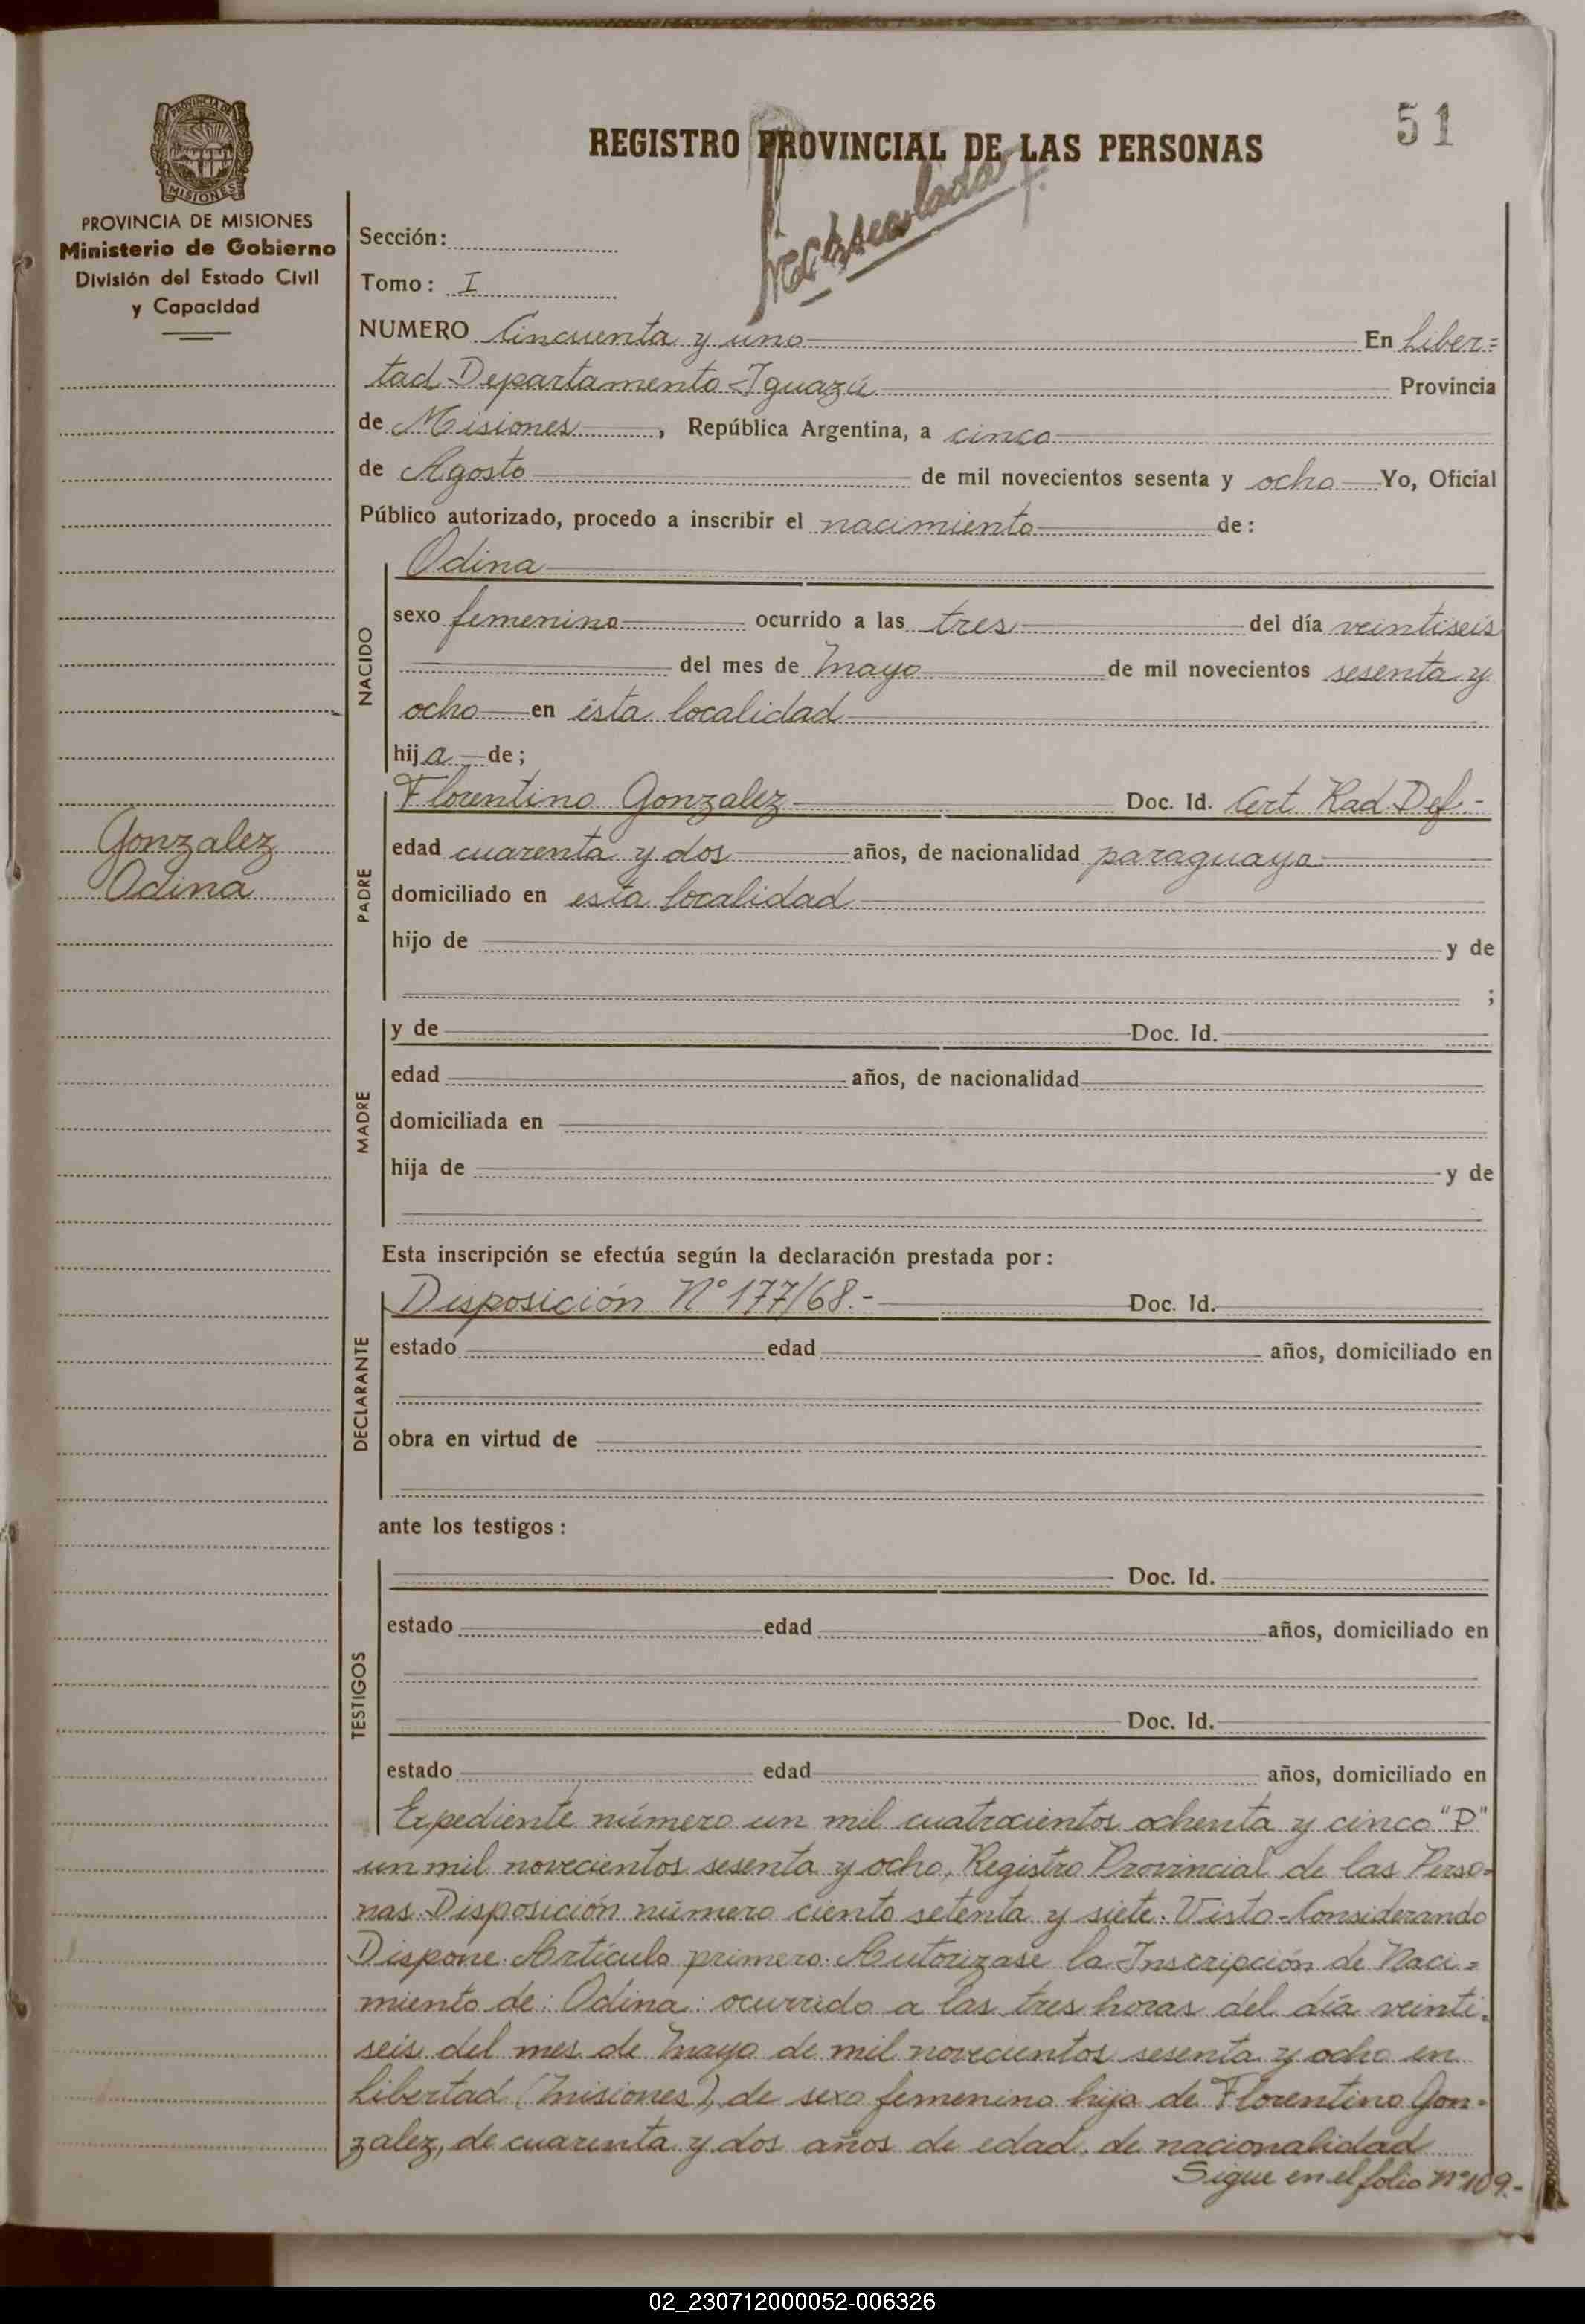 51
REGISTRO PROVINCIAL DE LAS PERSONAS
PROVINCIA DE
MISIONES
PROVINCIA DE MISIONES
Ministerio de Gobierno
División del Estado Civil
y Capacidad
Gonzalez
Odina
Sección:
Tomo: I
NUMERO Cincuenta y uno En Liber=
tad-Departamento-Iguazú Provincia
de Misiones, República Argentina, a cinco
de Agosto de mil novecientos sesenta y ocho Yo, Oficial
Público autorizado, procedo a inscribir el nacimiento de:
NACIDO
Odina
sexo femenino ocurrido a las tres del día veintiseis
del mes de Mayo de mil novecientos sesenta y
ocho en ésta localidad
hija de;
PADRE
Florentino Gonzalez Doc. Id. Cert Rad. Def.-
edad cuarenta y dos años, de nacionalidad paraguaya
domiciliado en esta localidad
hijo de y de
;
MADRE
y de Doc. Id.
edad años, de nacionalidad
domiciliada en
hija de y de
Esta inscripción se efectúa según la declaración prestada por:
DECLARANTE
Disposición N° 177/68.- Doc. Id.
estado edad años, domiciliado en
obra en virtud de
ante los testigos:
TESTIGOS
Doc. Id.
estado edad años, domiciliado en
Doc. Id.
estado edad años, domiciliado en
Expediente número un mil cuatrocientos ochenta y cinco "P"
un mil novecientos sesenta y ocho, Registro Provincial de las Perso=
nas. Disposición número ciento setenta y siete. Visto-Considerando
Dispone: Artículo primero: Autorizase la Inscripción de Naci=
miento de: Odina: ocurrido a las tres horas del día veinti=
seis del mes de Mayo de mil novecientos sesenta y ocho en
Libertad (Misiones), de sexo femenino hija de Florentino Gon=
zalez, de cuarenta y dos años de edad, de nacionalidad
Sigue en el folio N° 109.-
02_230712000052-006326